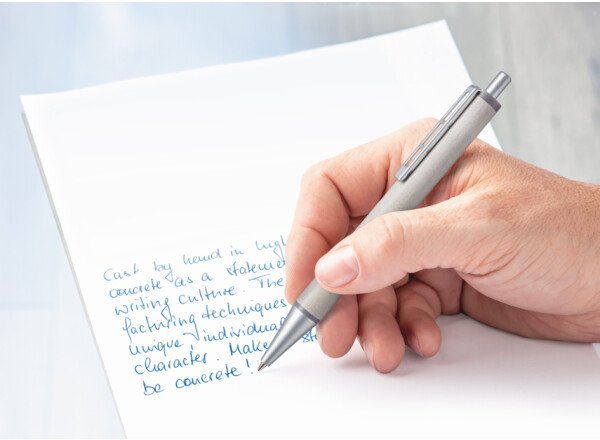 Cast by hand in high
concrete as a statement
writing culture. The
facturing techniques
unique individual
character. Make
be concrete!